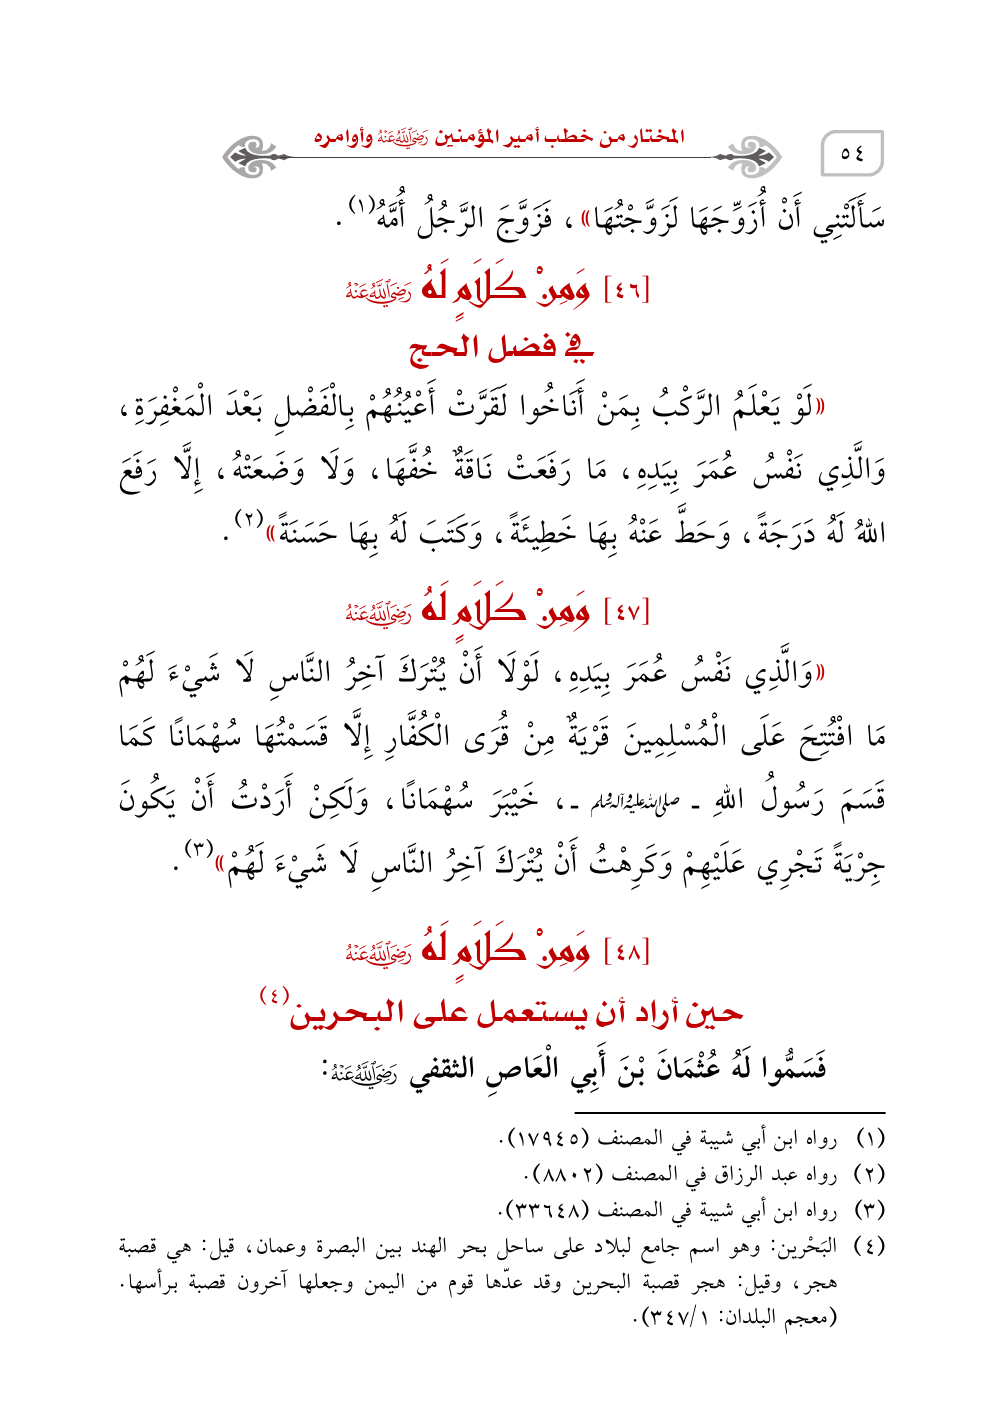 ٥٤
المختار من خطب أمير المؤمنين رَضِيَ اللَّهُ عَنْهُ وأوامره
سَأَلَتْنِي أَنْ أُزَوِّجَهَا لَزَوَّجْتُهَا»، فَزَوَّجَ الرَّجُلُ أُمَّهُ(١).
[٤٦] وَمِنْ كَلَامٍ لَهُ رَضِيَ اللَّهُ عَنْهُ
في فضل الحج
«لَوْ يَعْلَمُ الرَّكْبُ بِمَنْ أَنَاخُوا لَقَرَّتْ أَعْيُنُهُمْ بِالْفَضْلِ بَعْدَ الْمَغْفِرَةِ،
وَالَّذِي نَفْسُ عُمَرَ بِيَدِهِ، مَا رَفَعَتْ نَاقَةٌ خُفَّهَا، وَلَا وَضَعَتْهُ، إِلَّا رَفَعَ
اللهُ لَهُ دَرَجَةً، وَحَطَّ عَنْهُ بِهَا خَطِيئَةً، وَكَتَبَ لَهُ بِهَا حَسَنَةً»(٢).
[٤٧] وَمِنْ كَلَامٍ لَهُ رَضِيَ اللَّهُ عَنْهُ
«وَالَّذِي نَفْسُ عُمَرَ بِيَدِهِ، لَوْلَا أَنْ يُتْرَكَ آخِرُ النَّاسِ لَا شَيْءَ لَهُمْ
مَا افْتُتِحَ عَلَى الْمُسْلِمِينَ قَرْيَةٌ مِنْ قُرَى الْكُفَّارِ إِلَّا قَسَمْتُهَا سُهْمَانًا كَمَا
قَسَمَ رَسُولُ اللهِ ـ صلى الله عليه وآله وسلم ـ، خَيْبَرَ سُهْمَانًا، وَلَكِنْ أَرَدْتُ أَنْ يَكُونَ
جِرْيَةً تَجْرِي عَلَيْهِمْ وَكَرِهْتُ أَنْ يُتْرَكَ آخِرُ النَّاسِ لَا شَيْءَ لَهُمْ»(٣).
[٤٨] وَمِنْ كَلَامٍ لَهُ رَضِيَ اللَّهُ عَنْهُ
حين أراد أن يستعمل على البحرين(٤)
فَسَمُّوا لَهُ عُثْمَانَ بْنَ أَبِي الْعَاصِ الثقفي رَضِيَ اللَّهُ عَنْهُ:
(١) رواه ابن أبي شيبة في المصنف (١٧٩٤٥).
(٢) رواه عبد الرزاق في المصنف (٨٨٠٢).
(٣) رواه ابن أبي شيبة في المصنف (٣٣٦٤٨).
(٤) البَحْرين: وهو اسم جامع لبلاد على ساحل بحر الهند بين البصرة وعمان، قيل: هي قصبة
هجر، وقيل: هجر قصبة البحرين وقد عدّها قوم من اليمن وجعلها آخرون قصبة برأسها.
(معجم البلدان: ٣٤٧/١).